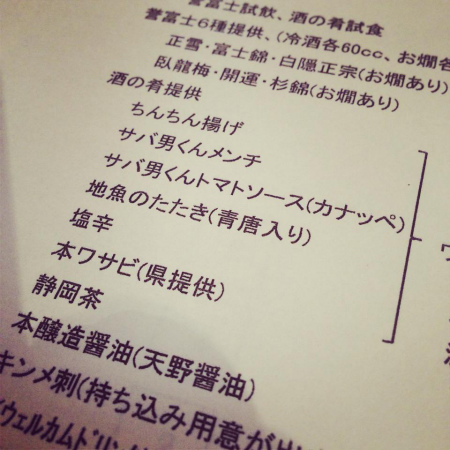 誉富士試飲、酒の肴試食
誉富士6種提供、(冷酒各60cc、お燗各
正雪・富士錦・白隠正宗(お燗あり)
臥龍梅・開運・杉錦(お燗あり)
酒の肴提供
ちんちん揚げ
サバ男くんメンチ
サバ男くんトマトソース(カナッペ)
地魚のたたき(青唐入り)
塩辛
本ワサビ(県提供)
静岡茶
本醸造醤油(天野醤油)
キンメ刺(持ち込み用意が出
ウェルカムドリン